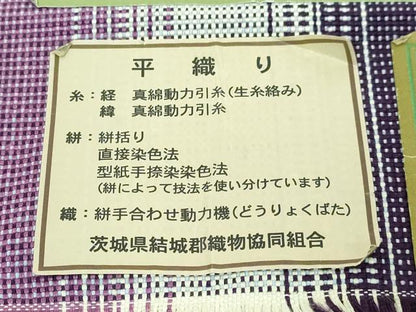 平織り
糸：経　真綿動力引糸（生糸絡み）
緯　真綿動力引糸
絣：絣括り
直接染色法
型紙手捺染染色法
（絣によって技法を使い分けています）
織：絣手合わせ動力機（どうりょくばた）
茨城県結城郡織物協同組合